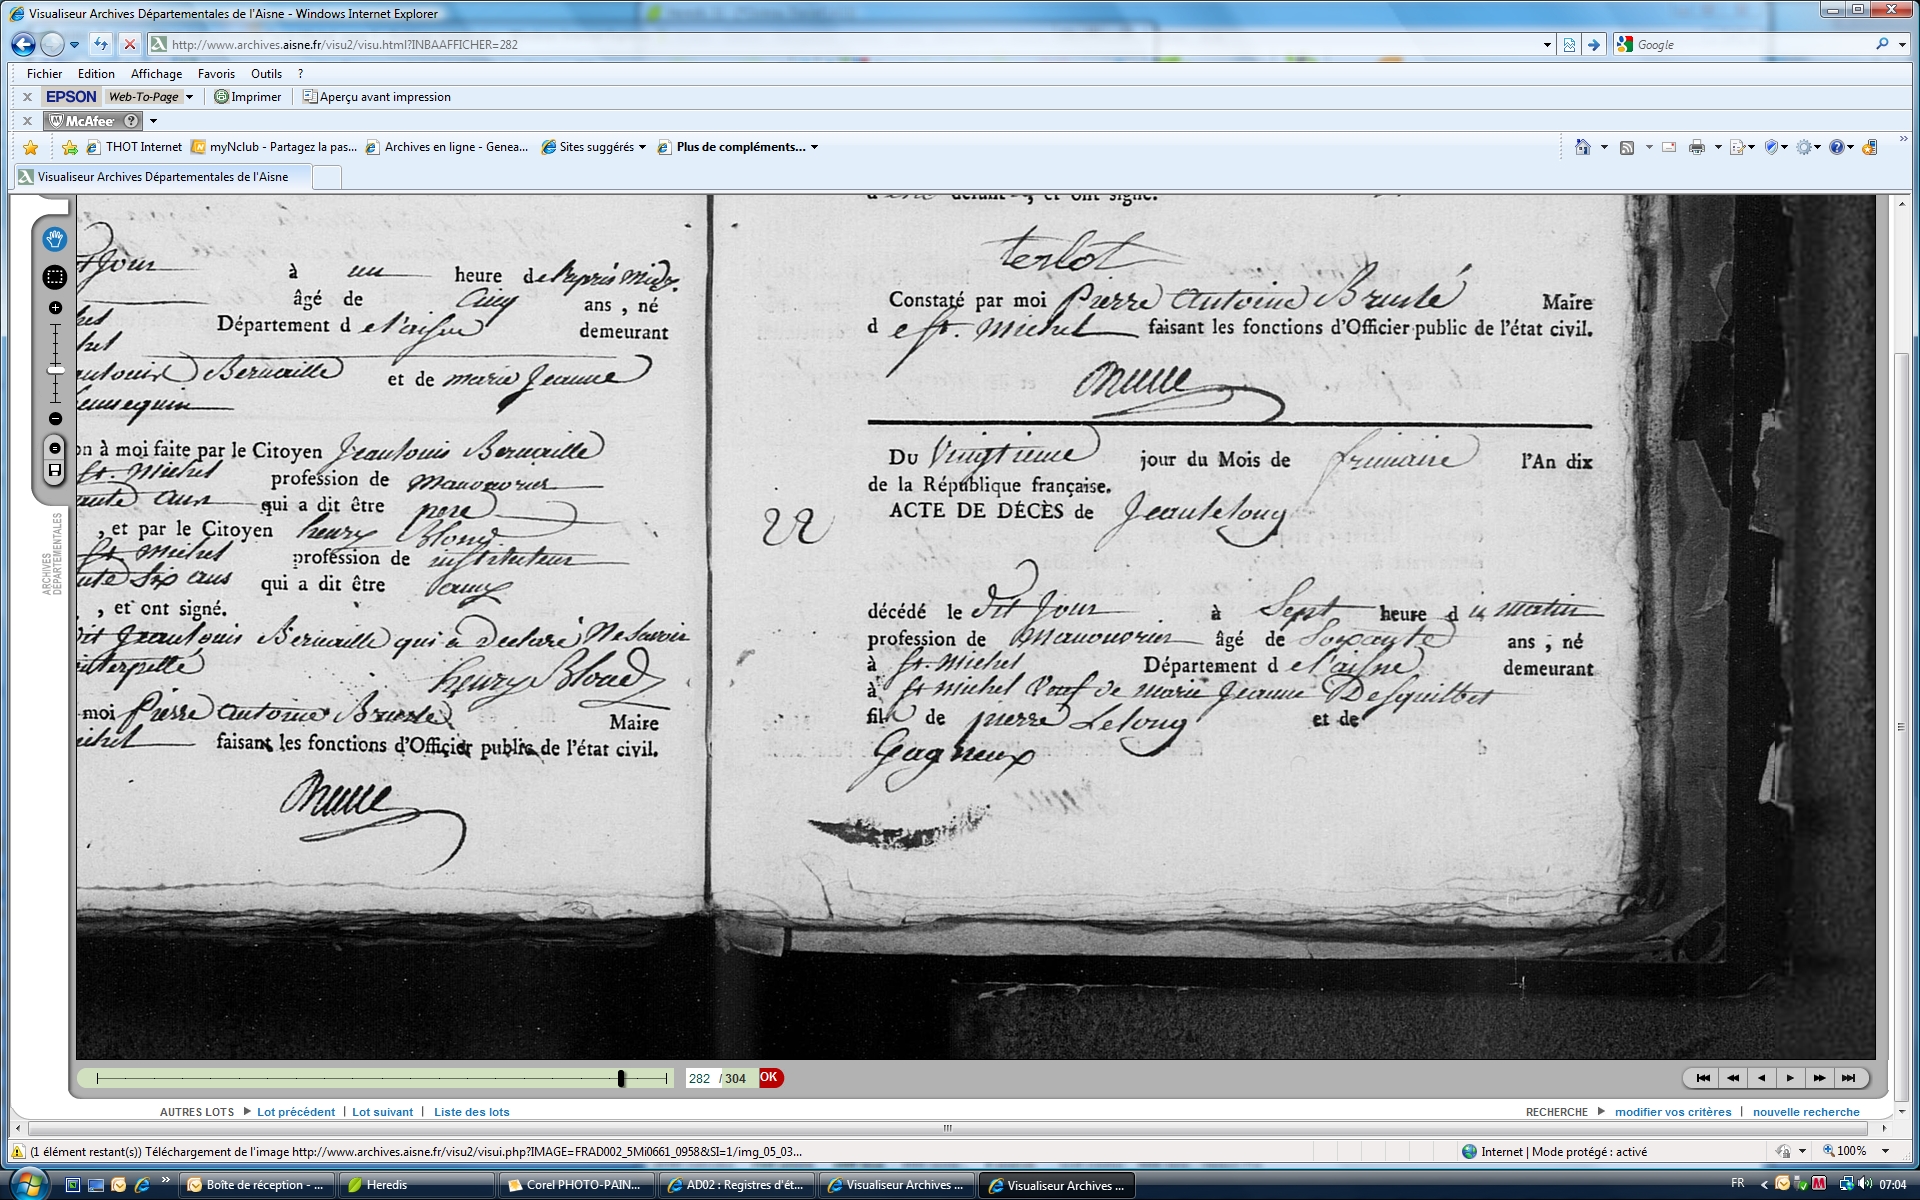 Visualiseur Archives Départementales de l'Aisne - Windows Internet Explorer
http://www.archives.aisne.fr/visu2/visu.html?INBAAFFICHER=282
Google
Fichier Edition Affichage Favoris Outils ?
x EPSON Web-To-Page Imprimer Aperçu avant impression
x McAfee ?
THOT Internet myNclub - Partagez la pas... Archives en ligne - Genea... Sites suggérés Plus de compléments...
Visualiseur Archives Départementales de l'Aisne
ARCHIVES DÉPARTEMENTALES
jour à un heure de
âgé de Cinq ans, né
Département d e l'aisne demeurant
Bernaille et de marie Jeanne
hennequin
on à moi faite par le Citoyen Jean louis Bernaille
St. Michel profession de manouvrier
ans qui a dit être pere
, et par le Citoyen henry Bloud
St Michel profession de instituteur
six ans qui a dit être amy
, et ont signé.
dit Jean louis Bernaille qui a Declaré Ne Savoir
interpellé henry Bloud
moi Pierre antoine Bruslé Maire
faisant les fonctions d'Officier public de l'état civil.
défunt, et ont signé.
terlot
Constaté par moi Pierre antoine Bruslé Maire
d e St. Michel faisant les fonctions d'Officier public de l'état civil.
DU Vingtieme jour du Mois de frimaire l'An dix
de la République française.
22 ACTE DE DÉCÈS de Jean lelong
décédé le dit Jour à Sept heure d u matin
profession de Manouvrier âgé de Soixante ans, né
à St. Michel Département d e l'aisne demeurant
à St Michel Veuf de marie Jeanne Desquilbet
fils de pierre Lelong et de
Gagneux
282 / 304 OK
AUTRES LOTS Lot précédent | Lot suivant | Liste des lots
RECHERCHE modifier vos critères | nouvelle recherche
(1 élément restant(s)) Téléchargement de l'image http://www.archives.aisne.fr/visu2/visui.php?IMAGE=FRAD002_5Mi0661_0958&SI=1/img_05_03...
Internet | Mode protégé : activé 100%
Boîte de réception - ... Heredis Corel PHOTO-PAIN... AD02 : Registres d'ét... Visualiseur Archives ... Visualiseur Archives ... FR 07:04